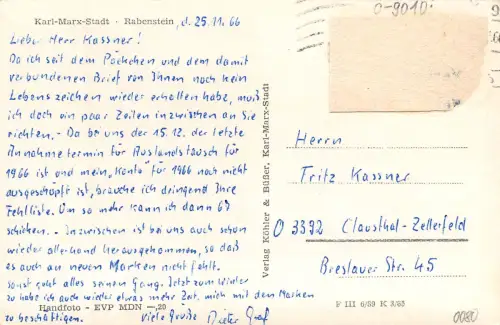 Karl-Marx-Stadt · Rabenstein, d. 25.11.66
Lieber Herr Kassner!
Da ich seit dem Päckchen und dem damit
verbundenen Brief von Ihnen noch kein
Lebenszeichen wieder erhalten habe, muß
ich doch ein paar Zeilen inzwischen an Sie
richten. - Da bei uns der 15.12. der letzte
Annahmetermin für Auslandstausch für
1966 ist und mein "Konto" für 1966 noch nicht
ausgeschöpft ist, brauche ich dringend Ihre
Fehlliste. Um so mehr kann ich dann 67
schicken. - Inzwischen ist bei uns auch schon
wieder allerhand herausgekommen, so daß
es auch an neuen Marken nicht fehlt.
Sonst geht alles seinen Gang. Jetzt zum Winter
zu habe ich auch wieder etwas mehr Zeit, mich mit den Marken
zu beschäftigen. Viele Grüße Dieter Graf
Handfoto - EVP MDN -,20
Verlag Köhler & Büßer, Karl-Marx-Stadt
0-9010
Herrn
Fritz Kassner
O 3392 Clausthal-Zellerfeld
Breslauer Str. 45
F III 6/59 K 3/63
0080